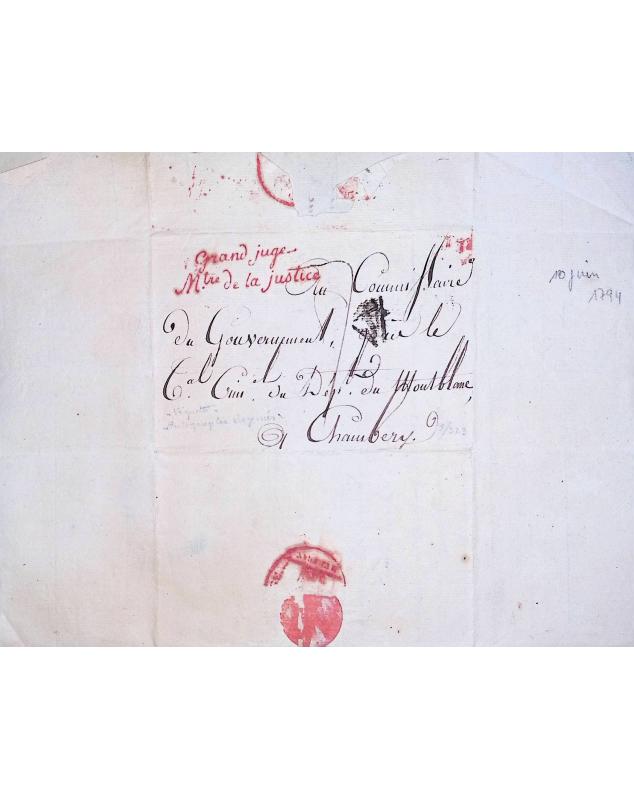 Grand juge
M.tre de la justice
Au Commissaire
du Gouvernement, près le
C.al Crim.el du Dép.t du Montblanc,
à Chambery.
10 juin
1794